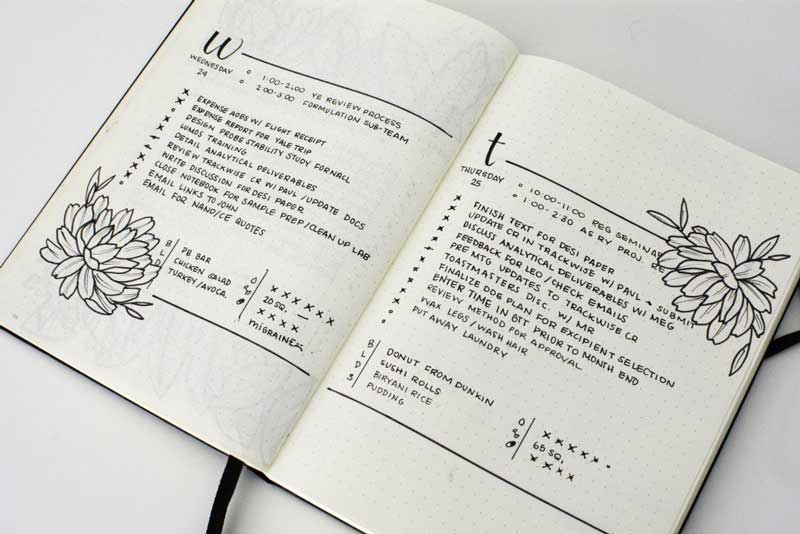 W
WEDNESDAY
24
1:00-2:00 YE REVIEW PROCESS
2:00-3:00 FORMULATION SUB-TEAM
EXPENSE AGES W/ FLIGHT RECEIPT
EXPENSE REPORT FOR YALE TRIP
DESIGN PROBE STABILITY STUDY FOR NACL
LUMOS TRAINING
DETAIL ANALYTICAL DELIVERABLES
REVIEW TRACKWISE CR W/ PAUL / UPDATE DOCS
WRITE DISCUSSION FOR DESI PAPER
CLOSE NOTEBOOK FOR SAMPLE PREP / CLEAN UP LAB
EMAIL LINKS TO JOHN
EMAIL FOR NANO/CE QUOTES
B PB BAR
L CHICKEN SALAD
D TURKEY/AVOCA.
20 SQ.
MIGRAINE
t
THURSDAY
25
10:00-11:00 REG SEMINAR
1:00-2:30 AS RY PROJ. RE
FINISH TEXT FOR DESI PAPER
UPDATE CR IN TRACKWISE W/ PAUL → SUBMIT
DISCUSS ANALYTICAL DELIVERABLES W/ MEG
FEEDBACK FOR LEO / CHECK EMAILS
PRE MTG UPDATES TO TRACKWISE CR
TOASTMASTERS DISC. W/ MR
FINALIZE DOE PLAN FOR EXCIPIENT SELECTION
ENTER TIME IN BTT PRIOR TO MONTH END
REVIEW METHOD FOR APPROVAL
WAX LEGS / WASH HAIR
PUT AWAY LAUNDRY
B DONUT FROM DUNKIN
L SUSHI ROLLS
D BIRYANI RICE
S PUDDING
65 SQ.